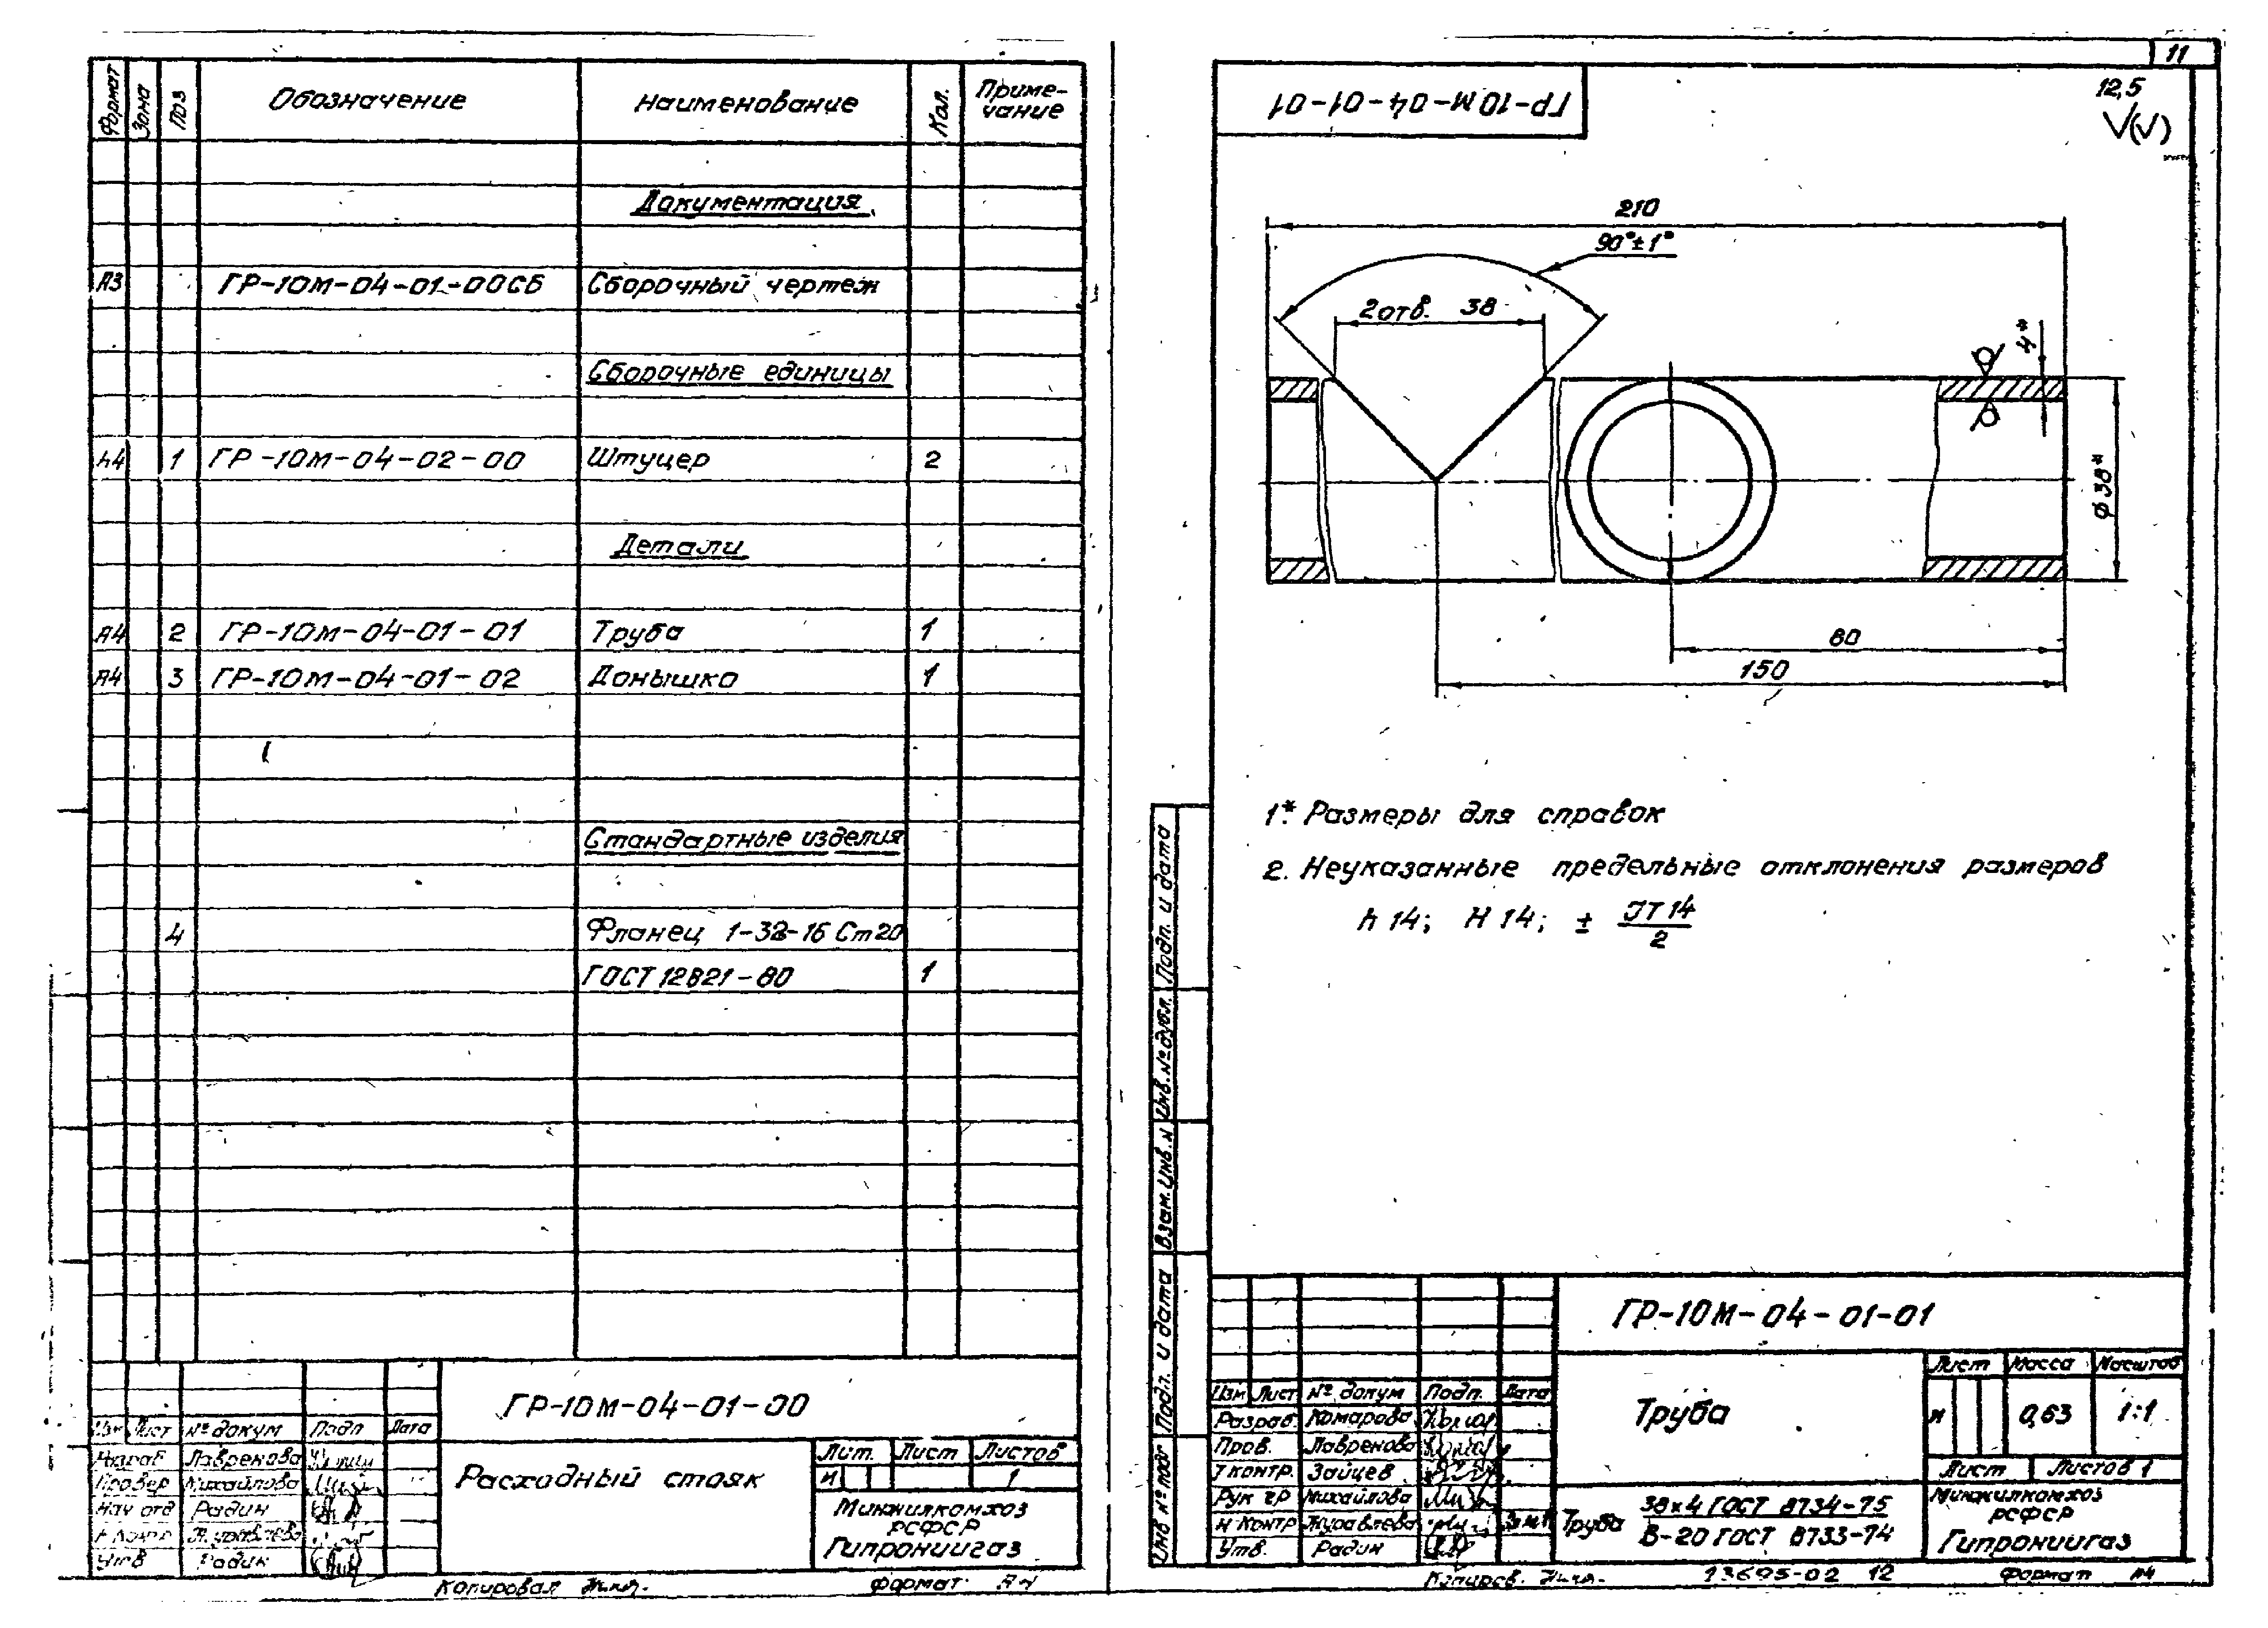 Формат Зона Поз Обозначение Наименование Кол. Приме-
чание
Документация
А3 ГР-10М-04-01-00СБ Сборочный чертеж
Сборочные единицы
А4 1 ГР-10М-04-02-00 Штуцер 2
Детали
А4 2 ГР-10М-04-01-01 Труба 1
А4 3 ГР-10М-04-01-02 Донышко 1
Стандартные изделия
4 Фланец 1-32-16 Ст20
ГОСТ 12821-80 1
ГР-10М-04-01-00
Изм Лист № докум Подп Дата
Разраб Лавренова
Провер Михайлова
Нач отд Радин
Н контр Журавлева
Утв Радин
Расходный стояк
Лит. Лист Листов
И 1
Минжилкомхоз
РСФСР
Гипрониигаз
Копировал
формат А4
11
ГР-10М-04-01-01
12,5
√(√)
210
90°±1°
2отв. 38
4*
ϕ38*
80
150
1.* Размеры для справок
2. Неуказанные предельные отклонения размеров
h 14; H 14; ± JT 14
2
Подп. и дата
Инв. № дубл.
Взам. инв. №
Подп. и дата
Инв № подл
ГР-10М-04-01-01
Изм Лист № докум Подп. Дата
Разраб. Комарова
Пров. Лавренова
Т контр. Зайцев
Рук гр Михайлова
Н контр Журавлева
Утв. Радин
Труба
Лист Масса Масштаб
И 0,63 1:1
Лист Листов 1
Труба 38×4 ГОСТ 8734-75
В-20 ГОСТ 8733-74
Минжилкомхоз
РСФСР
Гипрониигаз
Копиров.
13695-02 12
Формат А4